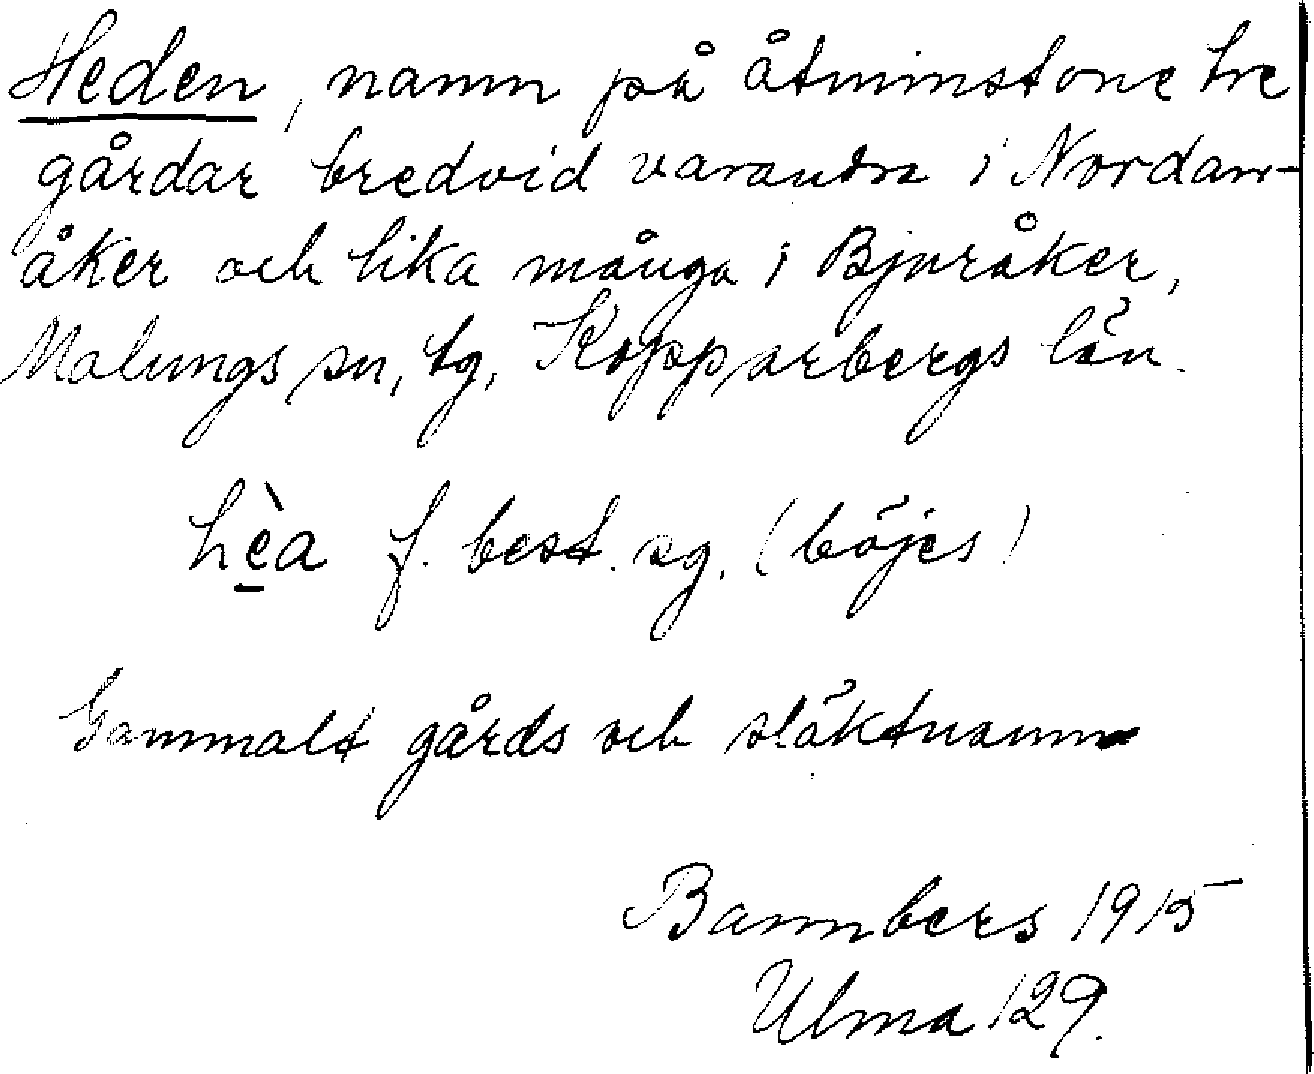 Heden, namn på åtminstone tre
gårdar bredvid varandra i Nordan-
åker och lika många i Bjuråker,
Malungs sn, tg, Kopparbergs län.
hèa f. best. sg. (böjes)
Gammalt gårds och släktnamn
Bannbers 1915
Ulma 129.